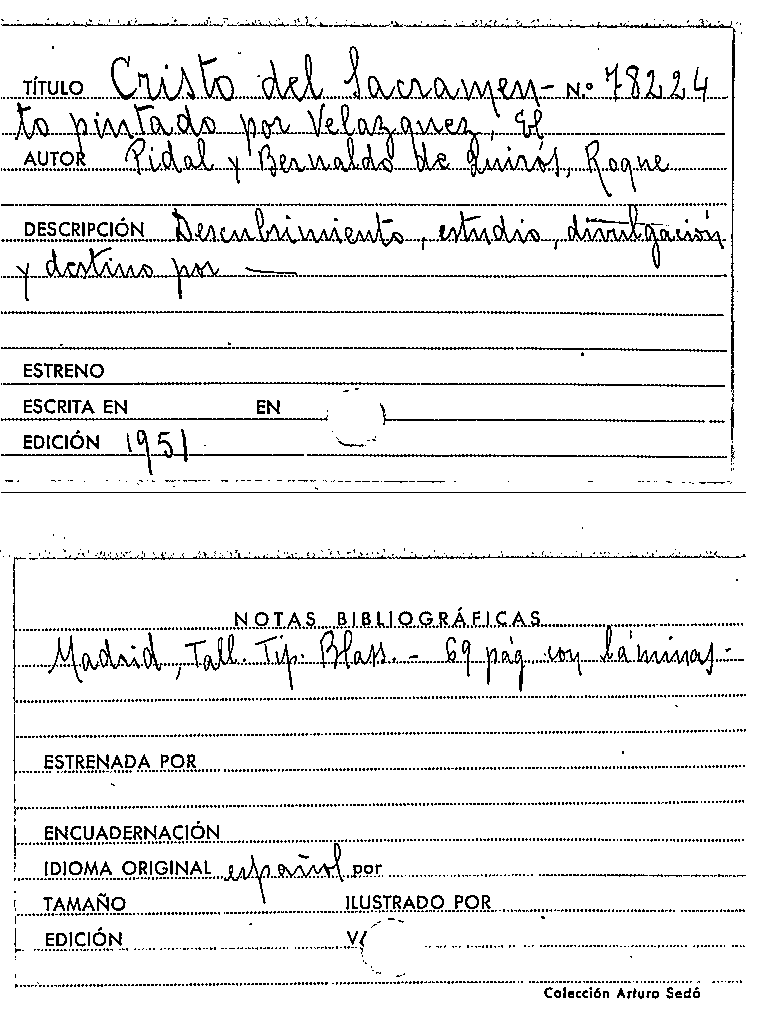 TÍTULO Cristo del Sacramen- N.º 78224
to pintado por Velazquez, El
AUTOR Pidal y Bernaldo de Quirós, Roque
DESCRIPCIÓN Descubrimiento, estudio, divulgación
y destino por —
ESTRENO
ESCRITA EN EN
EDICIÓN 1951
NOTAS BIBLIOGRÁFICAS
Madrid, Tall. Tip. Blass. - 69 pág. con láminas-
ESTRENADA POR
ENCUADERNACIÓN
IDIOMA ORIGINAL español por
TAMAÑO ILUSTRADO POR
EDICIÓN
Colección Arturo Sedó